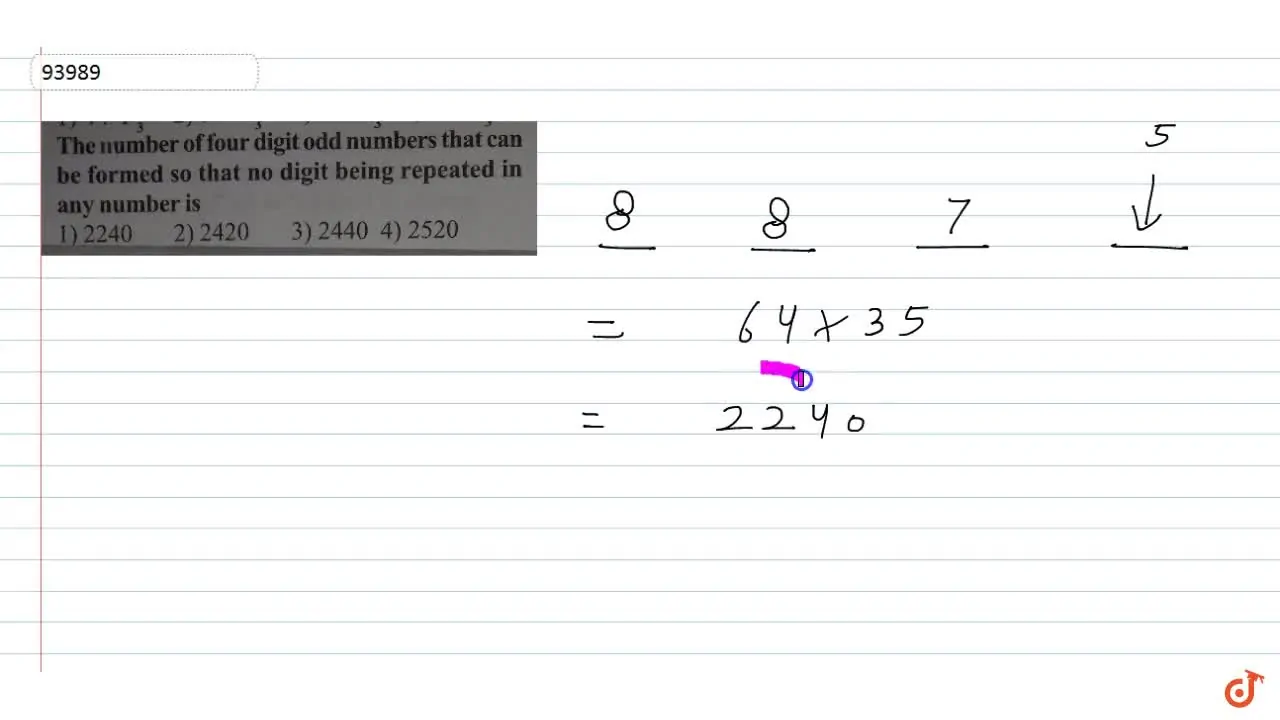 93989
The number of four digit odd numbers that can
be formed so that no digit being repeated in
any number is
1) 2240 2) 2420 3) 2440 4) 2520
5
8 8 7 ↓
= 64 x 35
= 2240